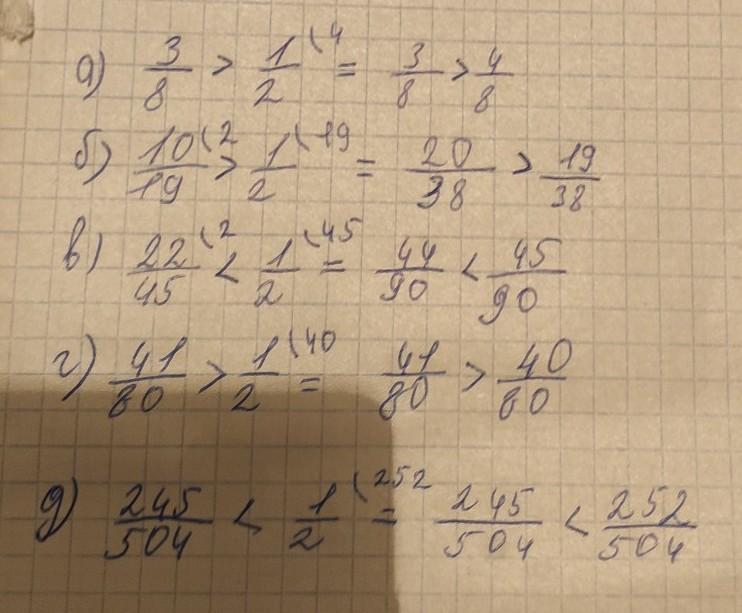 а) 3/8 > 1/2 (4 = 3/8 > 4/8
б) 10/19 (2 > 1/2 (19 = 20/38 > 19/38
в) 22/45 (2 < 1/2 (45 = 44/90 < 45/90
г) 41/80 > 1/2 (40 = 41/80 > 40/80
д) 245/504 < 1/2 (252 = 245/504 < 252/504